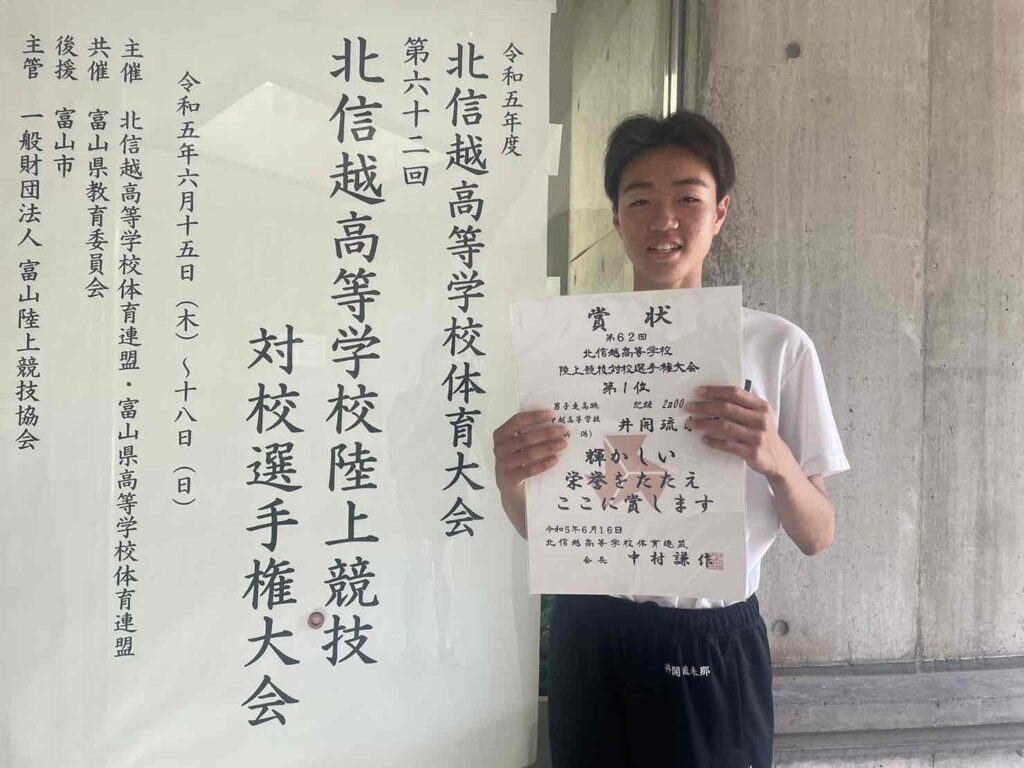 令和五年度
北信越高等学校体育大会
第六十二回
北信越高等学校陸上競技
対校選手権大会
令和五年六月十五日（木）～十八日（日）
主催 北信越高等学校体育連盟・富山県高等学校体育連盟
共催 富山県教育委員会
後援 富山市
主管 一般財団法人 富山陸上競技協会
賞状
第62回
北信越高等学校
陸上競技対校選手権大会
第1位
男子走高跳 記録 2m00
中越高等学校
井開琉
輝かしい
栄誉をたたえ
ここに賞します
令和5年6月16日
北信越高等学校体育連盟
会長 中村謙作